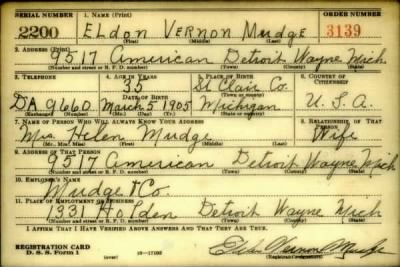 SERIAL NUMBER 1. NAME (Print) ORDER NUMBER
2200 ELdon VERNON Mudge 3139
(First) (Middle) (Last)
3. ADDRESS (Print)
9517 American Detroit Wayne Mich.
(Number and street or R. F. D. number) (Town) (County) (State)
3. TELEPHONE 4. AGE IN YEARS 5. PLACE OF BIRTH 6. COUNTRY OF CITIZENSHIP
35 St Clair Co.
DATE OF BIRTH
DA 9660 March 5 1905 Michigan U.S.A.
7. NAME OF PERSON WHO WILL ALWAYS KNOW YOUR ADDRESS 8. RELATIONSHIP OF THAT PERSON
Mrs Helen Mudge Wife
(Mr., Mrs., Miss) (First) (Middle) (Last)
9. ADDRESS OF THAT PERSON
9517 American Detroit Wayne Mich
(Number and street or R. F. D. number) (Town) (County) (State)
10. EMPLOYER'S NAME
Mudge & Co.
11. PLACE OF EMPLOYMENT OR BUSINESS
1331 Holden Detroit Wayne Mich
(Number and street or R. F. D. number) (Town) (County) (State)
I AFFIRM THAT I HAVE VERIFIED ABOVE ANSWERS AND THAT THEY ARE TRUE.
REGISTRATION CARD
D. S. S. Form 1 Eldon Vernon Mudge